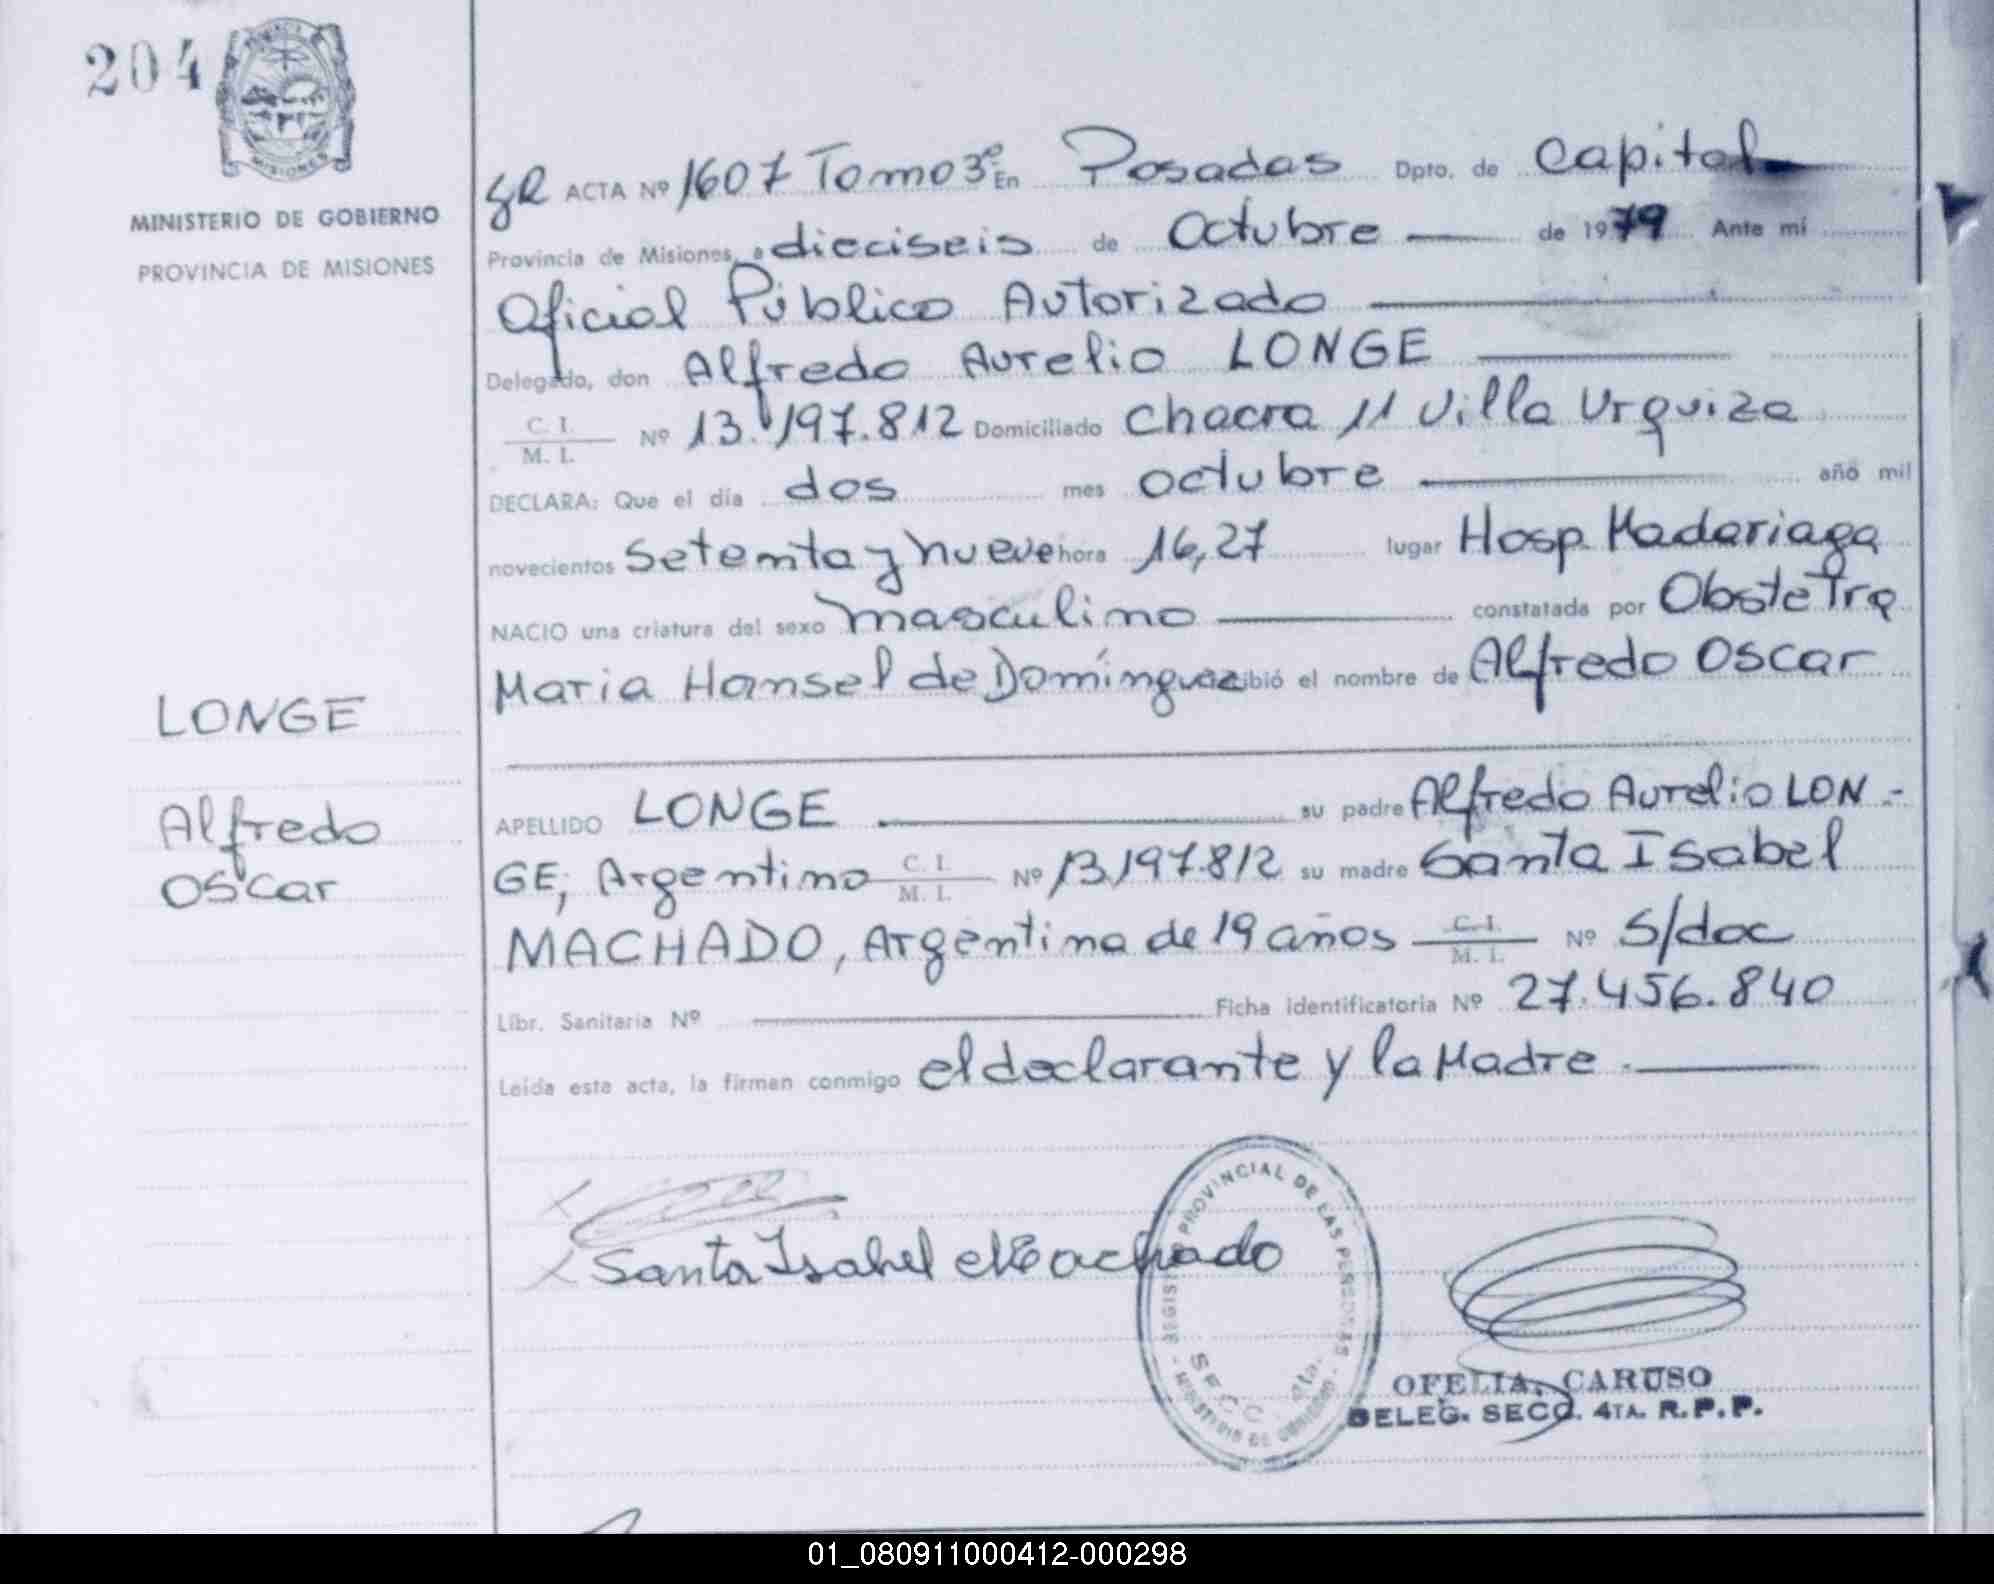 204
PROVINCIA DE
MISIONES
MINISTERIO DE GOBIERNO
PROVINCIA DE MISIONES
LONGE
Alfredo
Oscar
SR ACTA Nº 1607 Tomo 3º En Posadas Dpto. de Capital
Provincia de Misiones, a dieciseis de Octubre de 1979 Ante mí
Oficial Público Autorizado
Delegado, don Alfredo Aurelio LONGE
C. I. / M. I. Nº 13.197.812 Domiciliado Chacra 11 Villa Urquiza
DECLARA: Que el día dos mes octubre año mil
novecientos setenta y nueve hora 16,27 lugar Hosp. Madariaga
NACIO una criatura del sexo masculino constatada por Obstetra
Maria Hansel de Domínguez recibió el nombre de Alfredo Oscar
APELLIDO LONGE su padre Alfredo Aurelio LON-
GE, Argentino C. I. / M. I. Nº 13.197.812 su madre Santa Isabel
MACHADO, Argentina de 19 años C. I. / M. I. Nº S/doc
Libr. Sanitaria Nº Ficha identificatoria Nº 27.456.840
Leída esta acta, la firman conmigo el declarante y la Madre.
X
X Santa Isabel Machado
REGISTRO PROVINCIAL DE LAS PERSONAS
SECC. 4ta.
MINISTERIO DE GOBIERNO
OFELIA CARUSO
DELEG. SECC. 4TA. R.P.P.
01_080911000412-000298